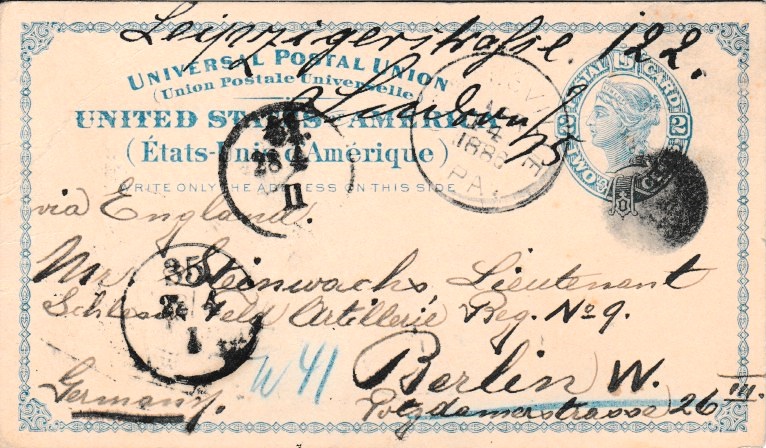 Leipzigerstraße 122.
UNIVERSAL POSTAL UNION
(Union Postale Universelle)
UNITED STATES AMERICA
(États-Unis d'Amérique)
WRITE ONLY THE ADDRESS ON THIS SIDE
POSTAL CARD
2 2
TWO
1886
PA.
11
via England.
Mr. Steinwachs, Lieutenant
Feld Artillerie Reg. No 9.
35
1
W 41
Berlin W.
Germany.
Potzdamerstrasse 26 III.